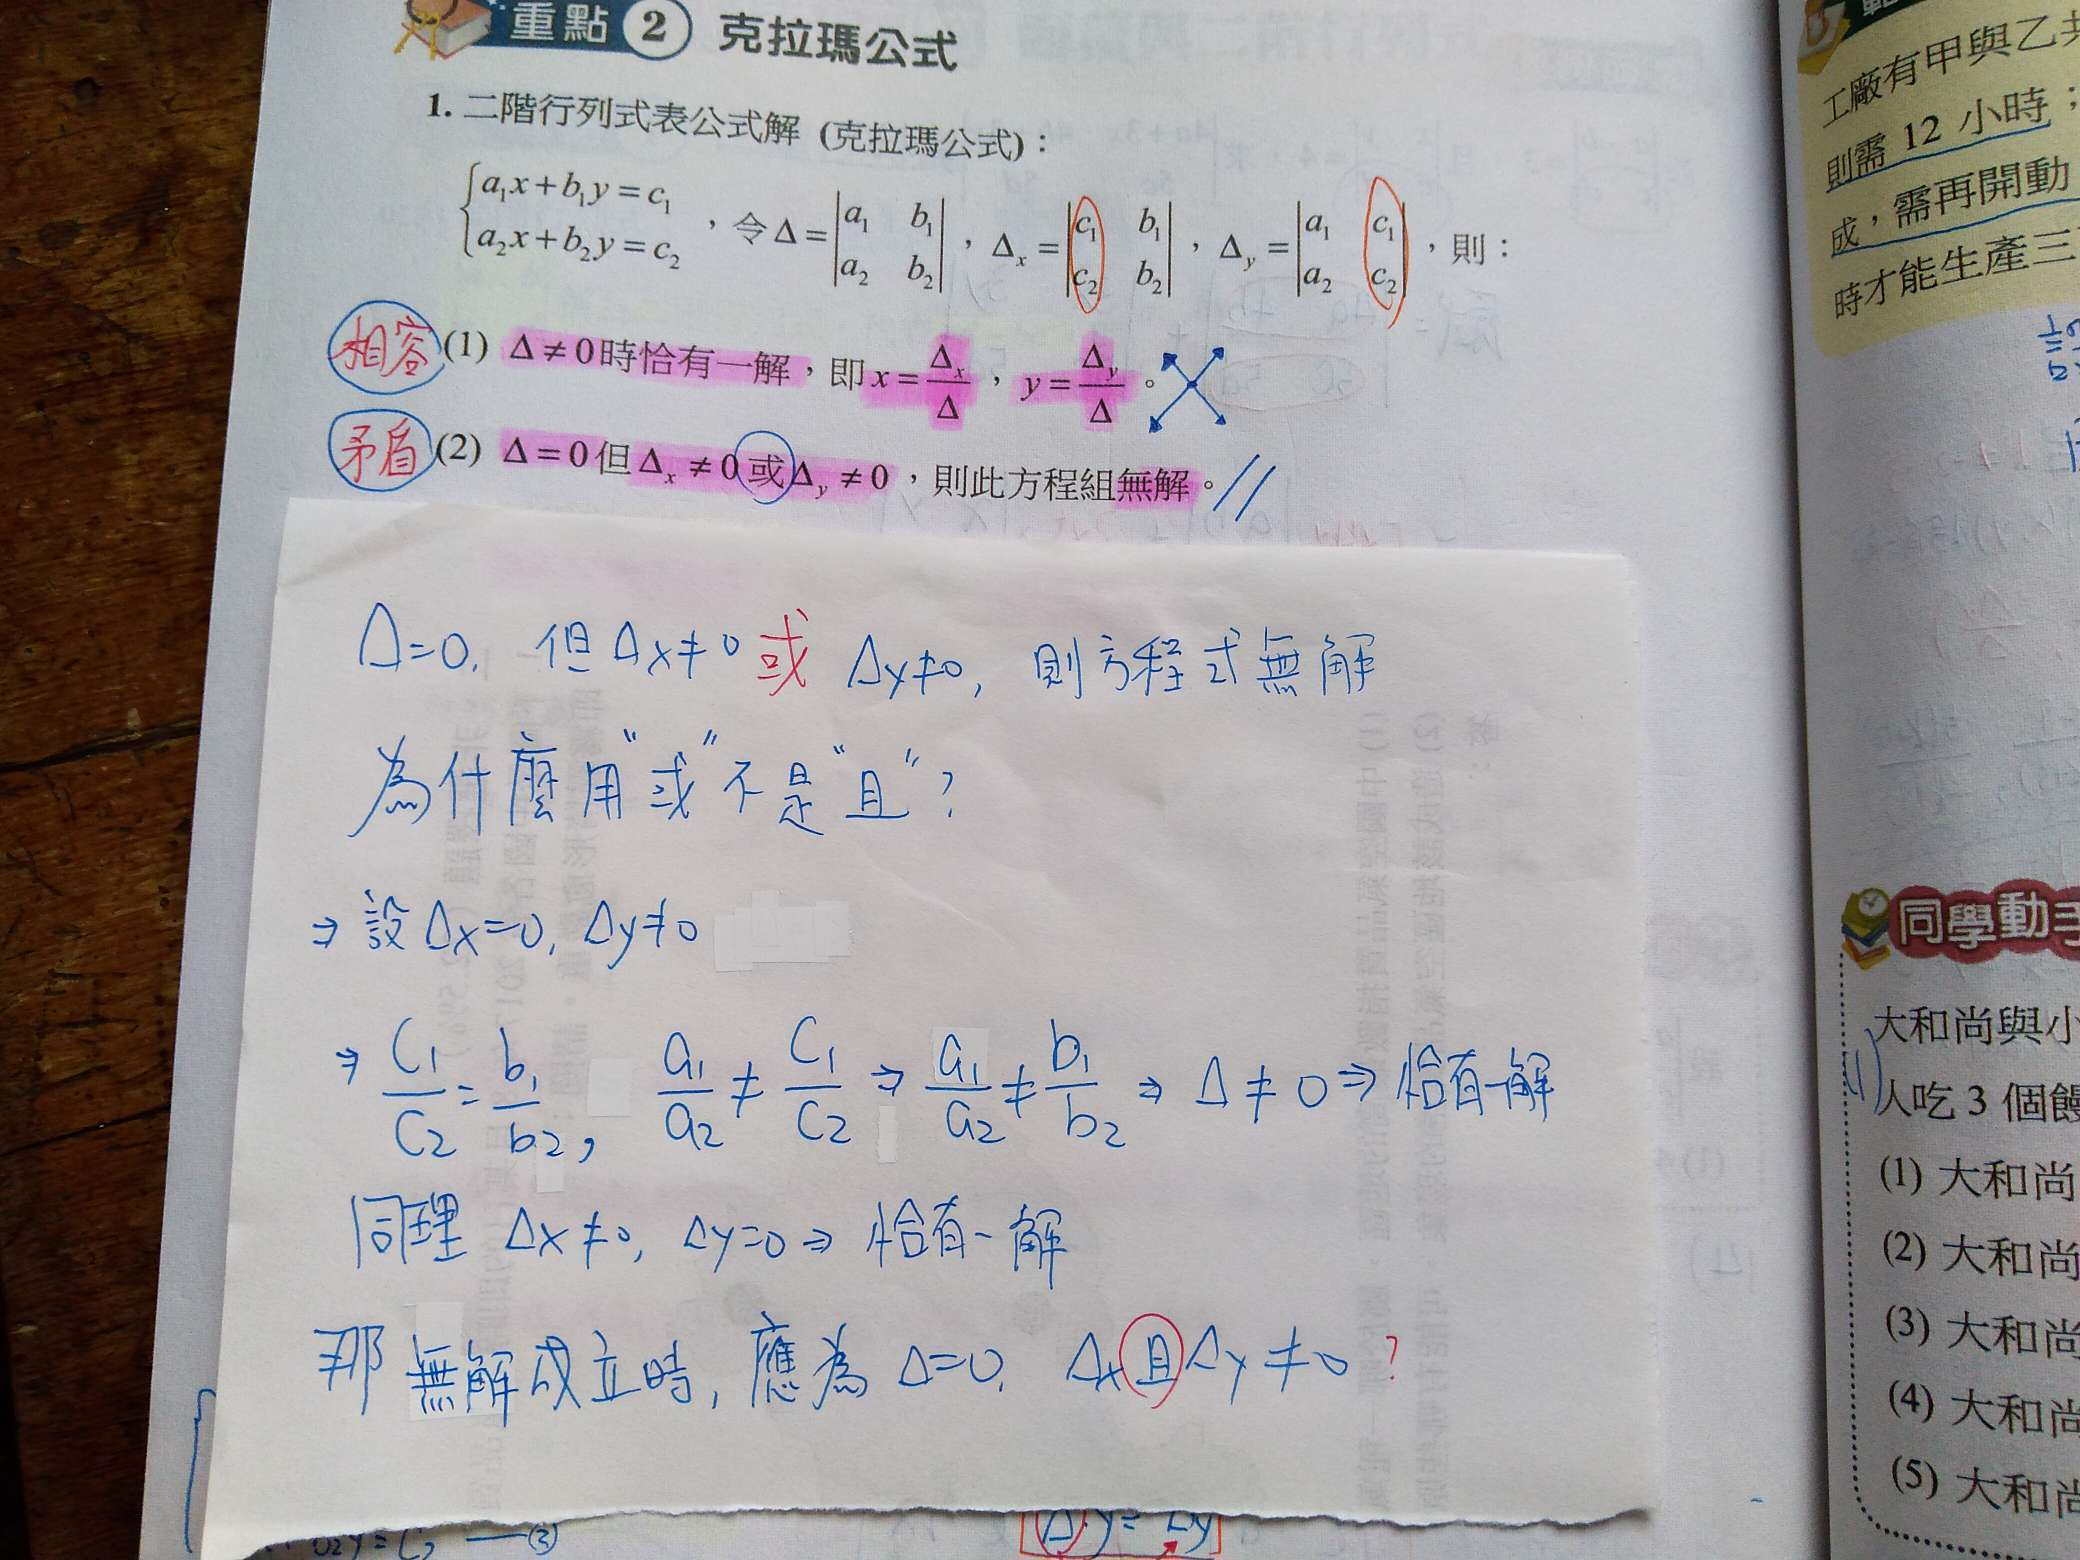 重點 2 克拉瑪公式
1. 二階行列式表公式解 (克拉瑪公式)：
{a₁x+b₁y=c₁
a₂x+b₂y=c₂ ，令Δ=|a₁ b₁ a₂ b₂|，Δₓ=|c₁ b₁ c₂ b₂|，Δy=|a₁ c₁ a₂ c₂|，則：
相容 (1) Δ≠0時恰有一解，即x=Δₓ/Δ，y=Δy/Δ。
矛盾 (2) Δ=0但Δₓ≠0或Δy≠0，則此方程組無解。
Δ=0, 但Δx≠0或Δy≠0, 則方程式無解
為什麼用"或"不是"且"?
⇒ 設Δx=0, Δy≠0
⇒ C₁/C₂=b₁/b₂, a₁/a₂≠C₁/C₂ ⇒ a₁/a₂≠b₁/b₂ ⇒ Δ≠0 ⇒ 恰有一解
同理 Δx≠0, Δy=0 ⇒ 恰有一解
那無解成立時, 應為Δ=0, Δx且Δy≠0?
Δ·y=Δy
工廠有甲與乙共
則需 12 小時；
成，需再開動
時才能生產三
同學動手
大和尚與小
人吃 3 個饅
(1) 大和尚
(2) 大和尚
(3) 大和尚
(4) 大和尚
(5) 大和尚